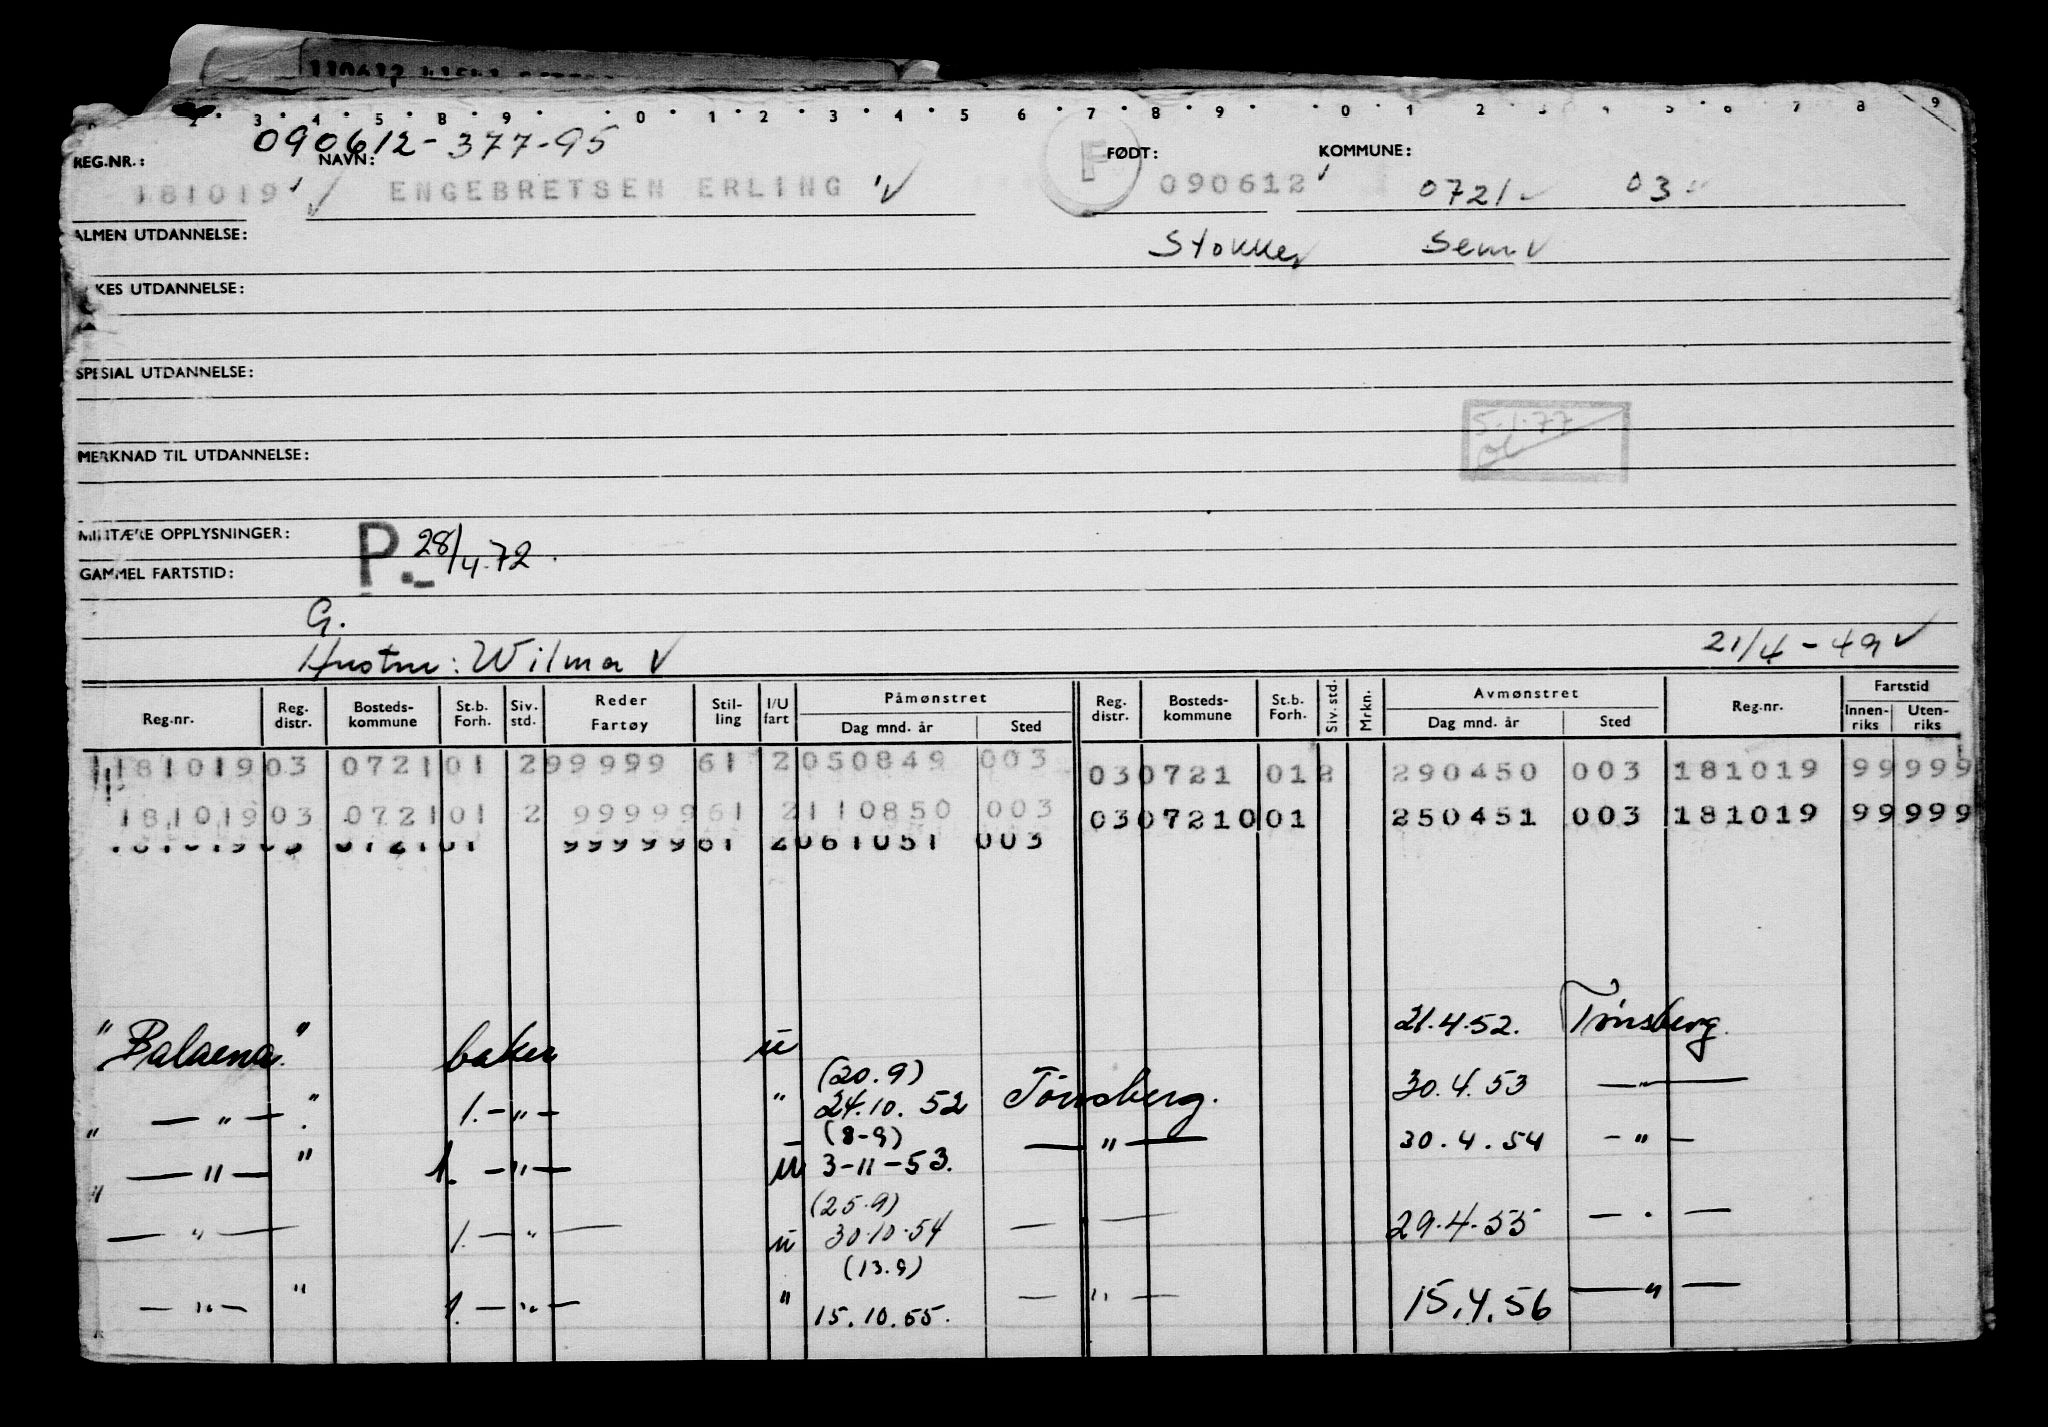 2 · 3 · 4 · 5 · 8 · 9 · 0 · 1 · 2 · 3 · 4 · 5 6 · 7 · 8 · 9 · 0 · 1 2 · 3 4 · 5 · 6 7 8 9
090612-377-95
REG.NR.: NAVN: FØDT: KOMMUNE:
181019 ENGEBRETSEN ERLING F 090612 0721 03
ALMEN UTDANNELSE: Stokke Sem
KES UTDANNELSE:
SPESIAL UTDANNELSE:
5.1.77
MERKNAD TIL UTDANNELSE:
MILITÆRE OPPLYSNINGER: P. 28/4.72.
GAMMEL FARTSTID:
G.
Hustru: Wilma 21/4-49
Reg.nr. Reg. distr. Bosteds-kommune St.b. Forh. Siv. std. Reder Fartøy Stil-ling I/U fart Påmønstret Dag mnd. år Sted Reg. distr. Bosteds-kommune St.b. Forh. Siv. std. Mrkn. Avmønstret Dag mnd. år Sted Reg.nr. Fartstid Innen-riks Uten-riks
181019 03 0721 01 2 99999 61 2 050849 003 03 0721 01 2 290450 003 181019 99999
181019 03 0721 01 2 99999 61 2 110850 003 03 0721 0 01 250451 003 181019 99999
181019 03 0721 01 99999 61 2 061051 003
"Balaena." baker u 21.4.52. Tønsberg.
(20.9)
— " — " 1. — " — " 24.10.52 Tønsberg. 30.4.53 — " —
(8-9)
" — " — " 1. — " — u 3-11-53. — " — 30.4.54 — " —
(25.9)
" — " — 1. — " — u 30.10.54 — " — 29.4.55 — " —
(13.9)
— " — " 1. — " — " 15.10.55. — " — 15.4.56 — " —